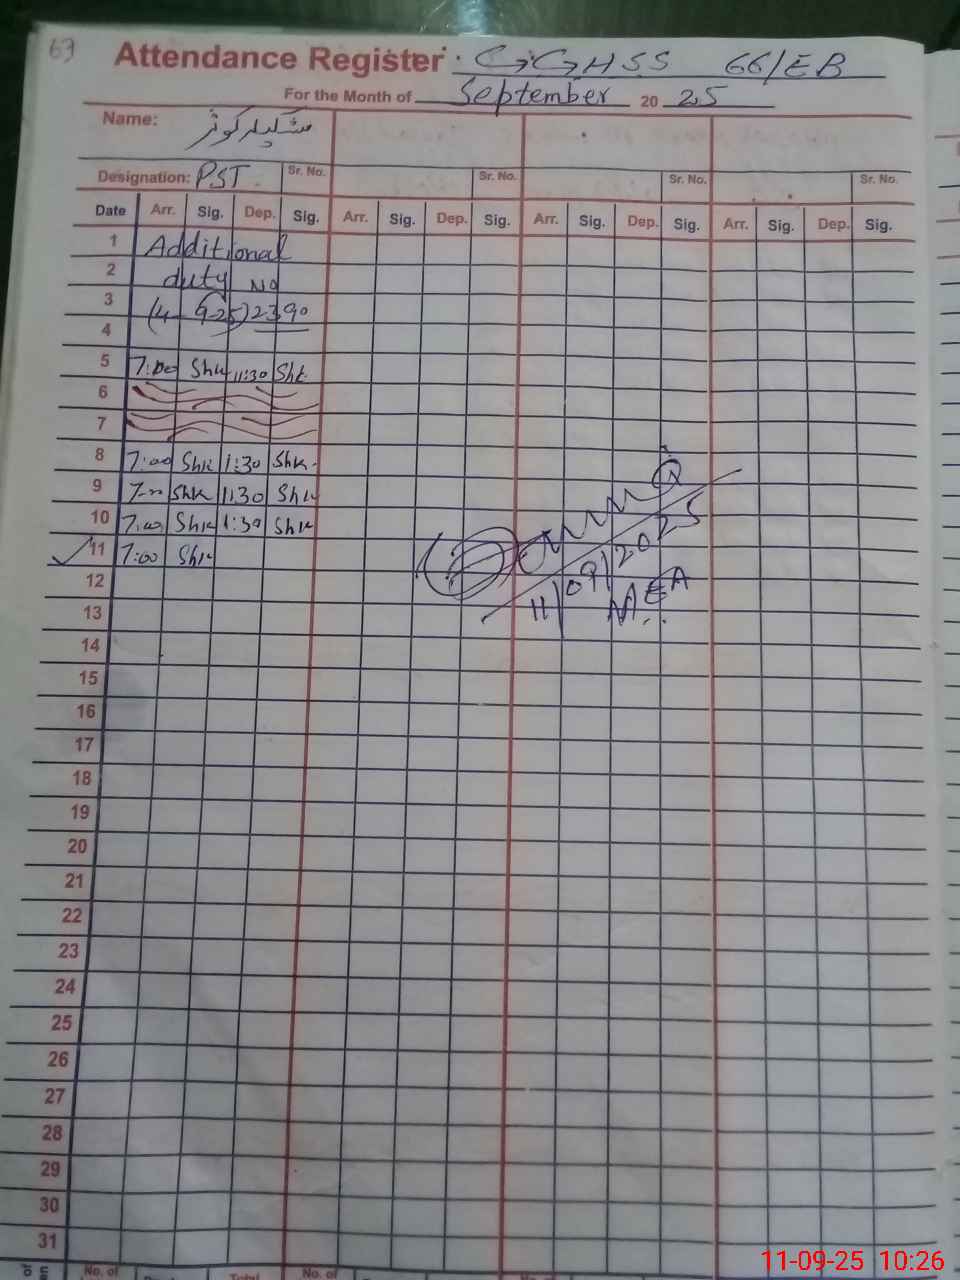 63
Attendance Register GGHSS 66/EB
For the Month of September 20 25
Name: شکیلہ کوثر
Designation: PST Sr. No. Sr. No. Sr. No. Sr. No.
Date Arr. Sig. Dep. Sig. Arr. Sig. Dep. Sig. Arr. Sig. Dep. Sig. Arr. Sig. Dep. Sig.
1 Additional
2 duty No
3 (4-9-25) 2390
4
5 7:00 Shk 11:30 Shk
6
7
8 7:00 Shk 1:30 Shk
9 7-00 Shk 1:30 Shk
10 7:00 Shk 1:30 Shk
11 7:00 Shk
11/09/2025
12
MEA
13
14
15
16
17
18
19
20
21
22
23
24
25
26
27
28
29
30
31
No. of Total No. of
11-09-25 10:26